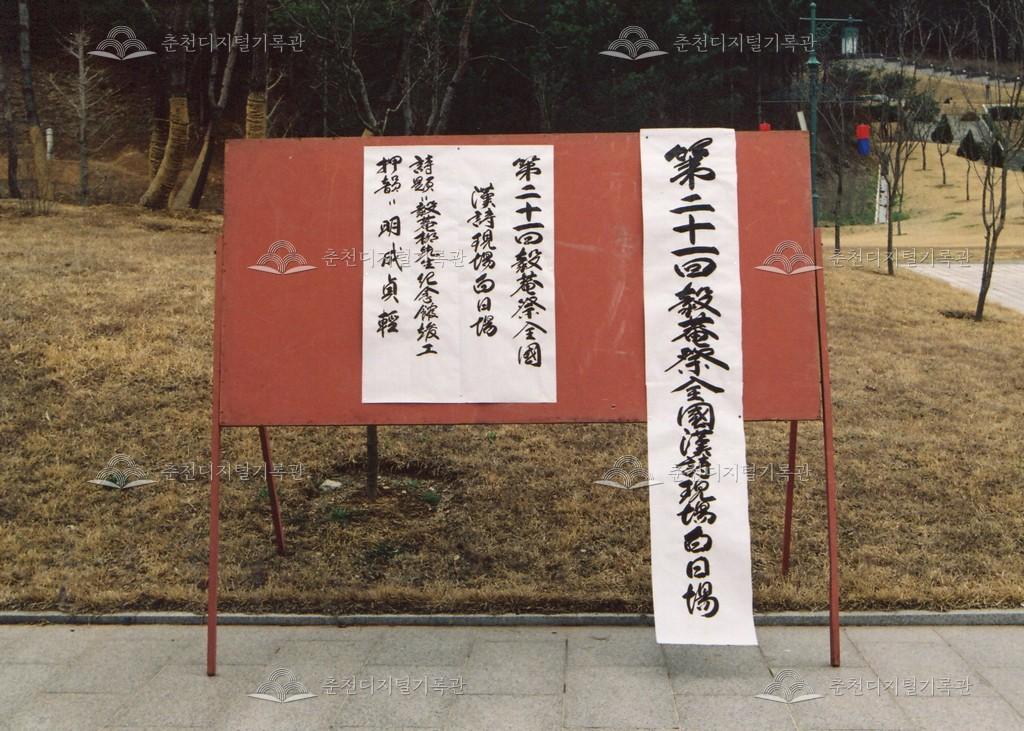 第二十一回毅菴祭全國漢詩現場白日場
第二十一回毅菴祭全國
漢詩現場白日場
詩題〃毅菴柳先生紀念館竣工
押韻〃明成貞輕
춘천디지털기록관
춘천디지털기록관
춘천디지털기록관
춘천디지털기록관
춘천디지털기록관
춘천디지털기록관
춘천디지털기록관
춘천디지털기록관